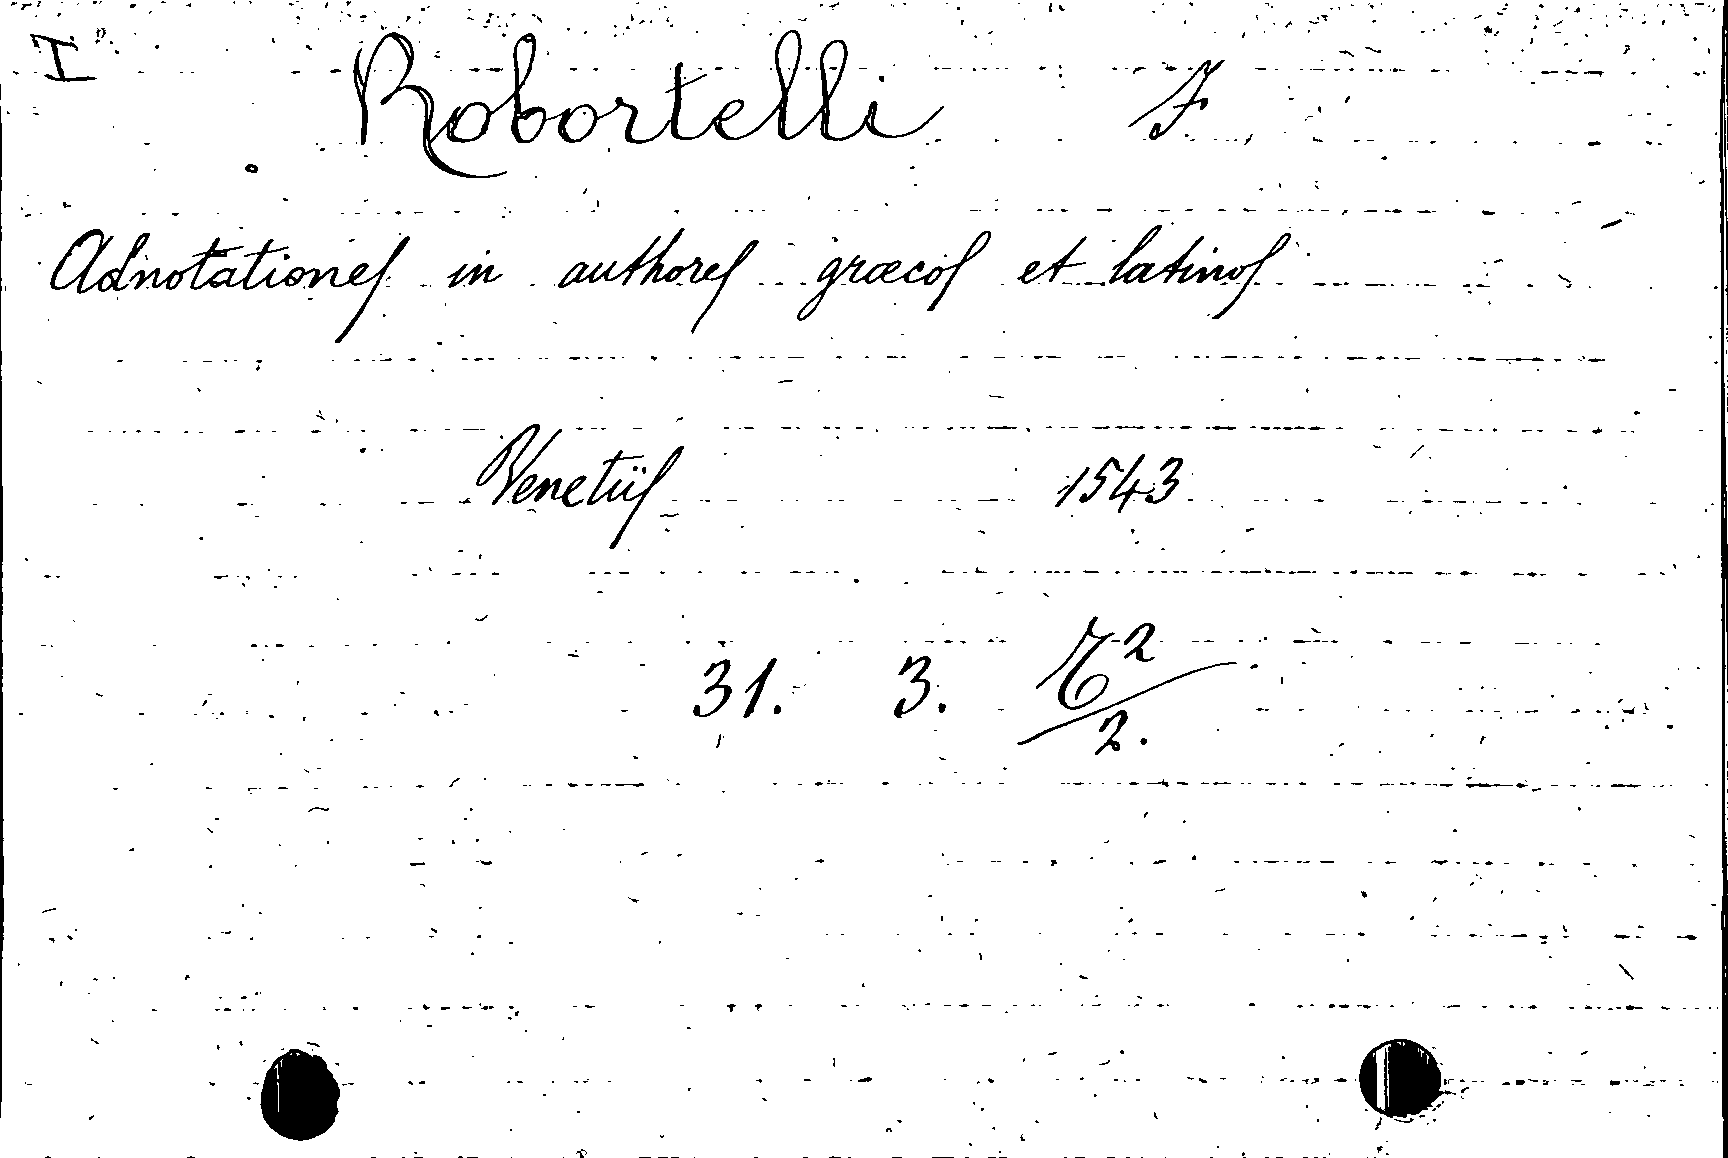 I Robortelli F
Adnotationes in authores græcos et latinos
Venetiis 1543
31. 3. 2
2.